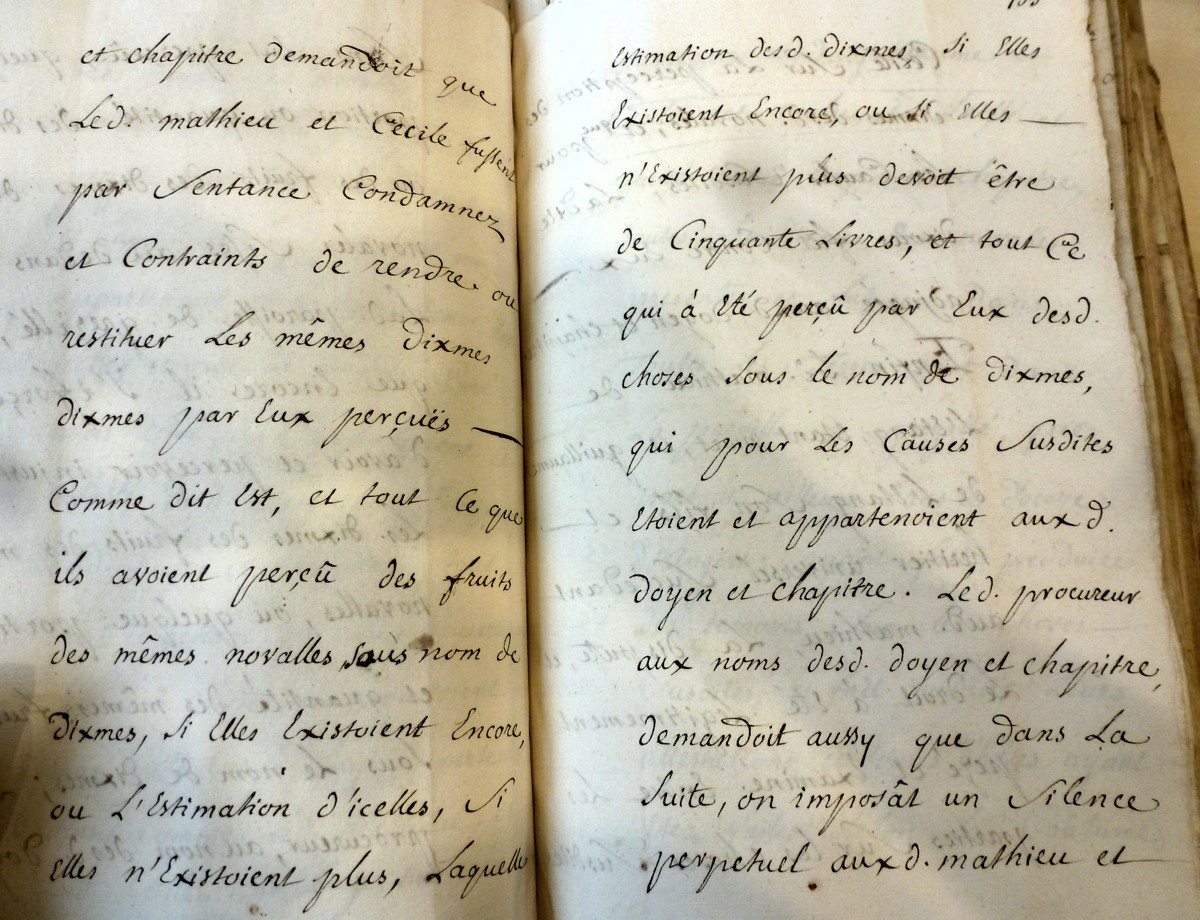 et chapitre demandoit que
Led. mathieu et Cecile fussent
par Sentance Condamnez
et Contraints de rendre ou
restituer Les mêmes Dixmes
dixmes par Eux perçuës —
Comme dit Est, et tout Ce que
ils avoient perçû des fruits
des mêmes novalles sous nom de
Dixmes, Si Elles Existoient Encore,
ou L'Estimation d'icelles, Si
Elles n'Existoient plus, Laquelle
Estimation desd. dixmes Si Elles
Existoient Encore, ou Si Elles —
n'Existoient plus devoit être
de Cinquante Livres, et tout Ce
qui à Eté perçû par Eux desd.
choses Sous le nom de Dixmes,
qui pour Les Causes Susdites
Etoient et appartenoient aux d.
doyen et Chapitre. Led. procureur
aux noms desd. doyen et chapitre,
demandoit aussy que dans La
Suite, on imposât un Silence
perpetuel aux d. mathieu et